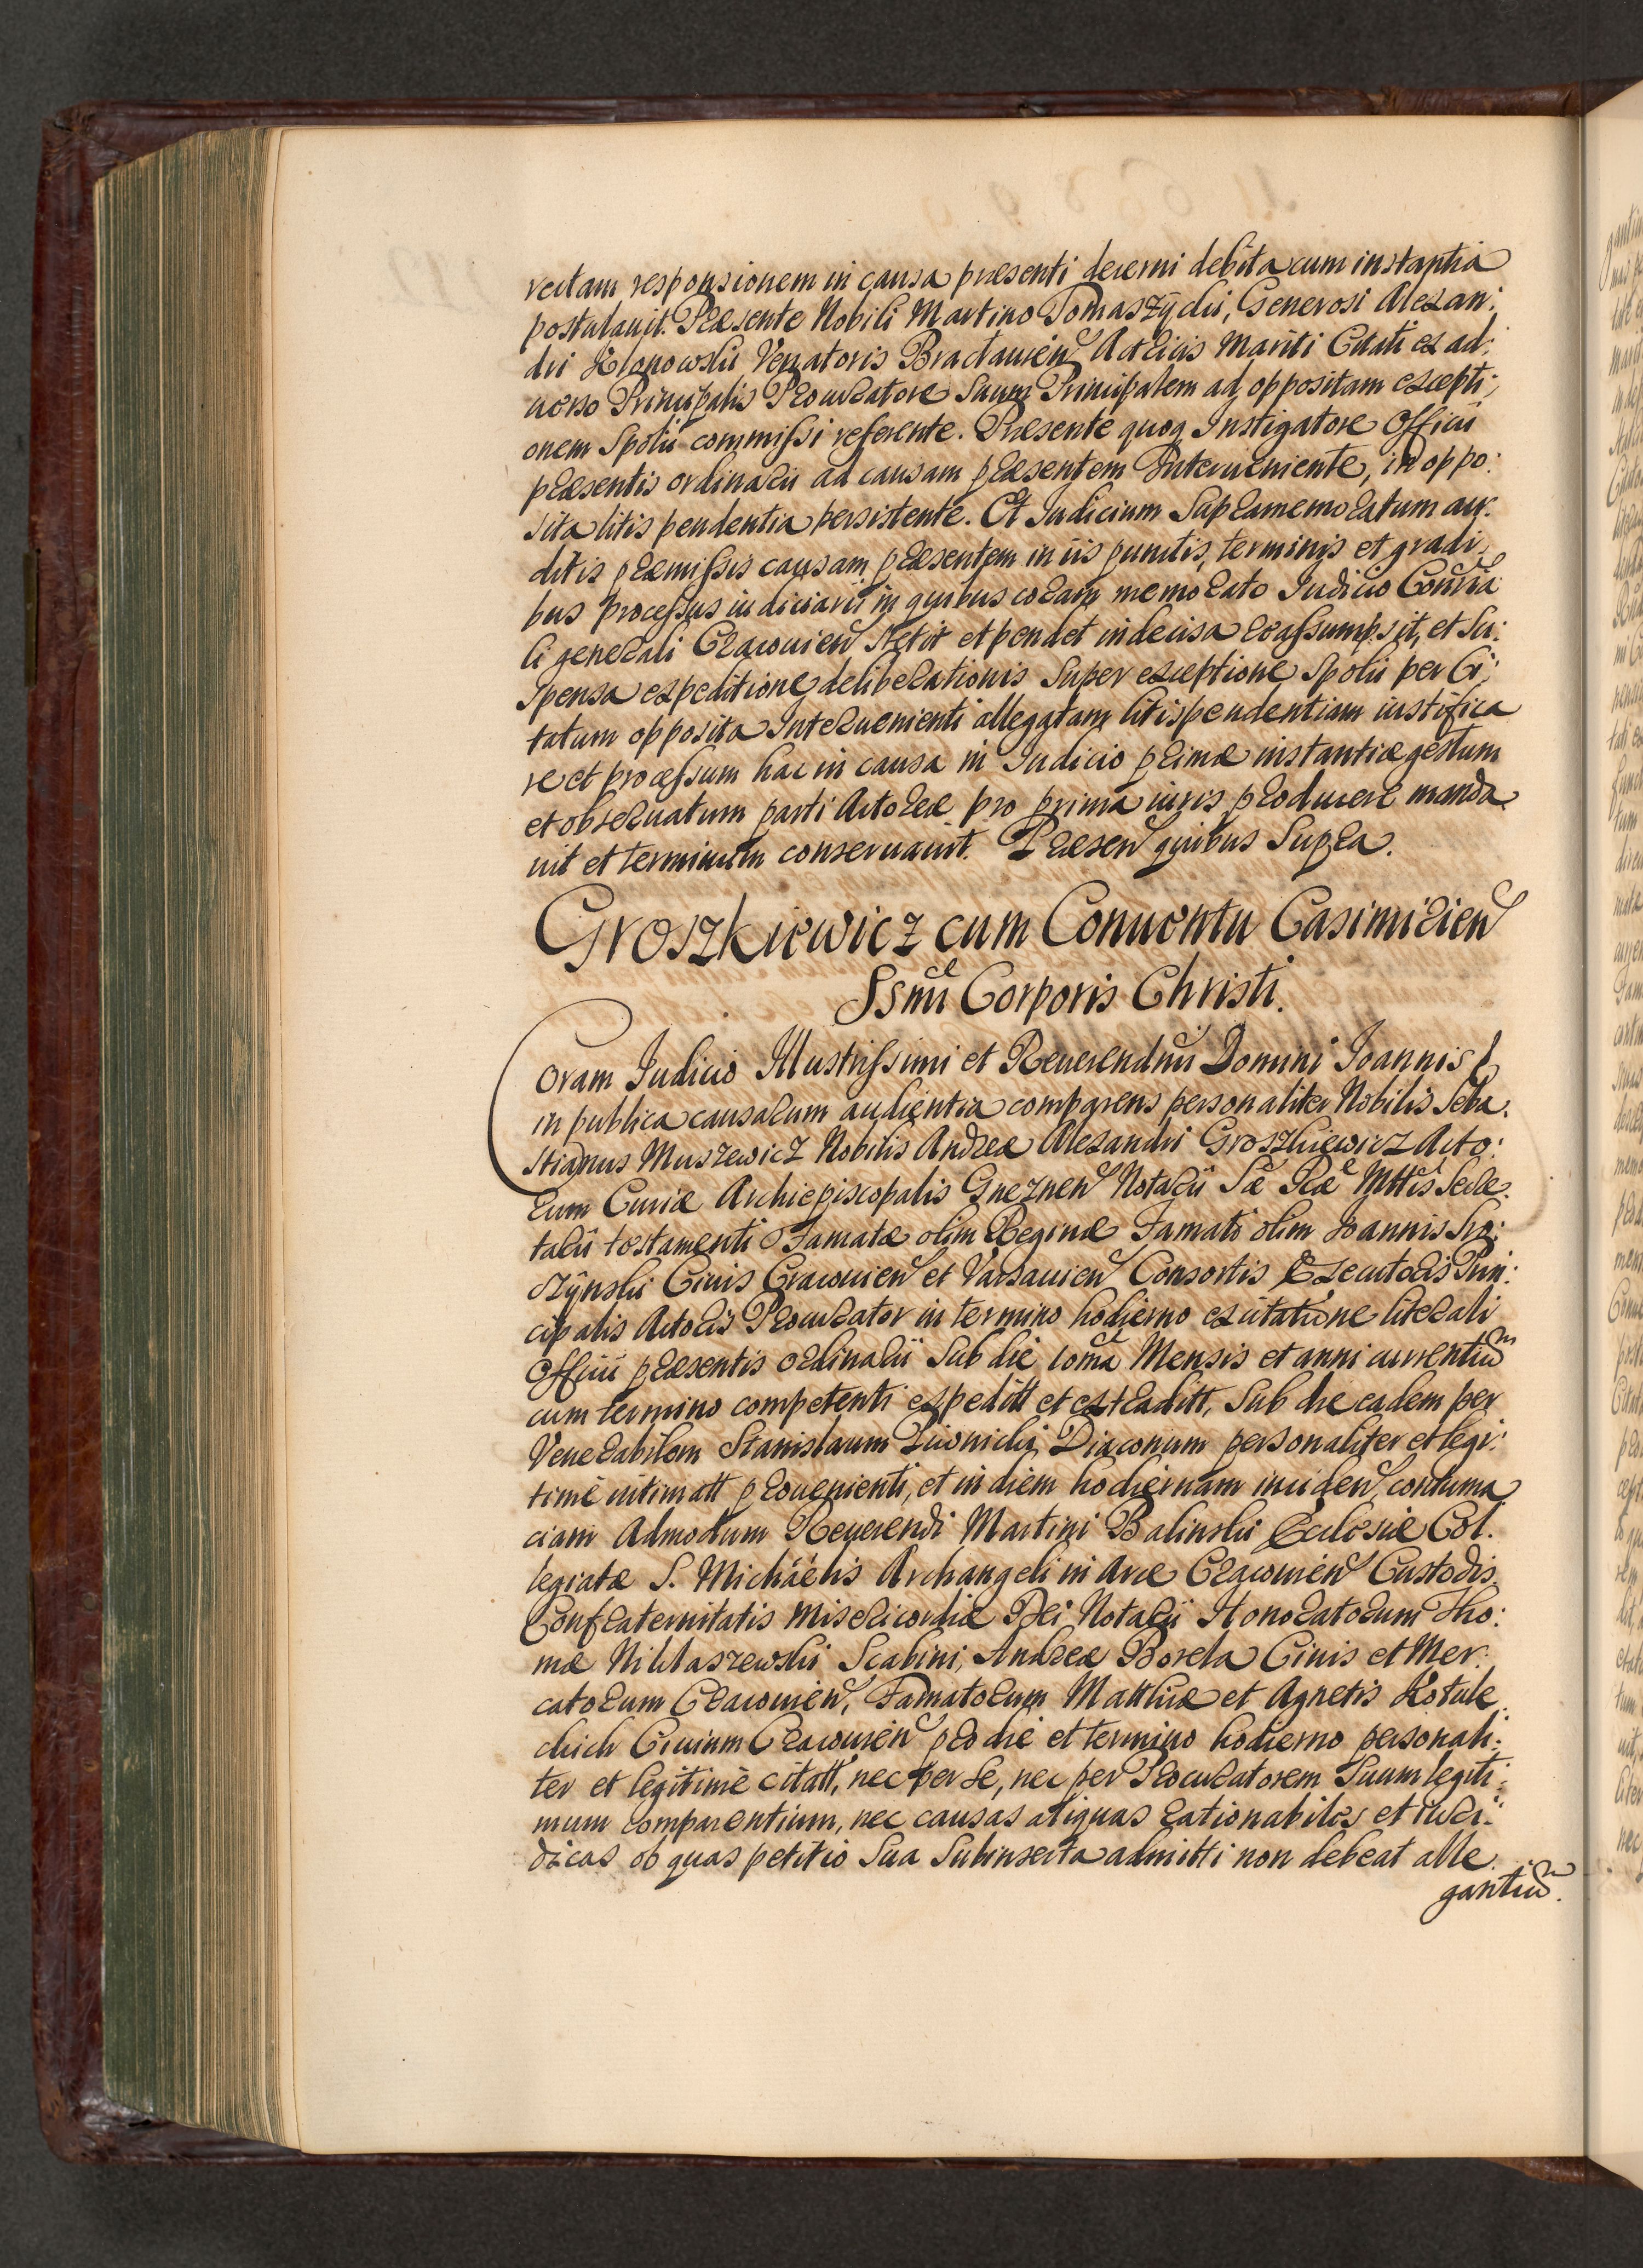 rectam responsionem in causa praesenti decerni debita cum instantia
postulauit. Praesente Nobili Martino Tomaszÿcki, Generosi Alexan:
dri Kłopowski Venatoris Bractauien Actricis Mariti Citati ex ad:
uerso Principalis Procuratore Suum Principalem ad oppositam excepti:
onem Spolii commissi referente. Praesente quoq Instigatore Officii
praesentis ordinarii ad causam praesentem Interueniente, in oppo:
sita litis pendentia persistente. Et Iudicium Supramemoratum au:
ditis praemissis causam praesentem in iis punctis, terminis et gradi:
bus processus iudiciarii in quibus coram memorato Iudicio Consula
li generali Cracouien stetit et pendet indecisa reassumpsit, et Su:
spensa expeditione deliberationis Super exceptione Spolii per Ci:
tatum opposita Interuenienti allegatam litispendentiam iustifica
re et processum hac in causa in Iudicio primae instantiae gestum
et obseruatum parti Actoreae pro prima iuris producere manda:
uit et terminum conseruauit. Praesen quibus Supra.
Groszkiewicz cum Conuentu Casimirien
Ssmi Corporis Christi.
Coram Iudicio Illustrissimi et Reuerendmi Domini Ioannis
in publica causarum audientia comparens personaliter Nobilis Seba:
stianus Muszewicz Nobilis Andreae Alexandri Groszkiewicz Acto:
rum Curiae Archiepiscopalis Gneznen Notarii Sae Rae Mttis Secre:
tarii testamenti Famatae olim Reginae Famati olim Ioannis
Ciuis Cracouien et Varsauien Consortis Executoris Prin:
cipalis Actoris Procurator in termino hodierno ex citatione literali
Officii praesentis ordinarii Sub die Mensis et anni currentium
cum termino competenti expeditt et extraditt, Sub die eadem per
Venerabilem Stanislaum Diaconum personaliter et legi:
time intimatt prouenienti, et in diem hodiernam inciden contuma
ciam Admodum Reuerendi Martini Balinski Ecclesiae Col:
legiatae S. Michaëlis Archangeli in Arce Cracouien Custodis
Confraternitatis Misericordiae Dei Notarii Honoratorum Tho:
mae Niklaszewski Scabini, Andreae Borela Ciuis et Mer:
catorum Cracouien, Famatorum Matthiae et Agnetis Kotule
ckich Ciuium Cracouien pro die et termino hodierno personali:
ter et legitime citatt, nec per se, nec per Procuratorem Suum legiti:
mum comparentium, nec causas aliquas rationabiles et iuri:
dicas ob quas petitio Sua Subinserta admitti non debeat alle:
gantium.